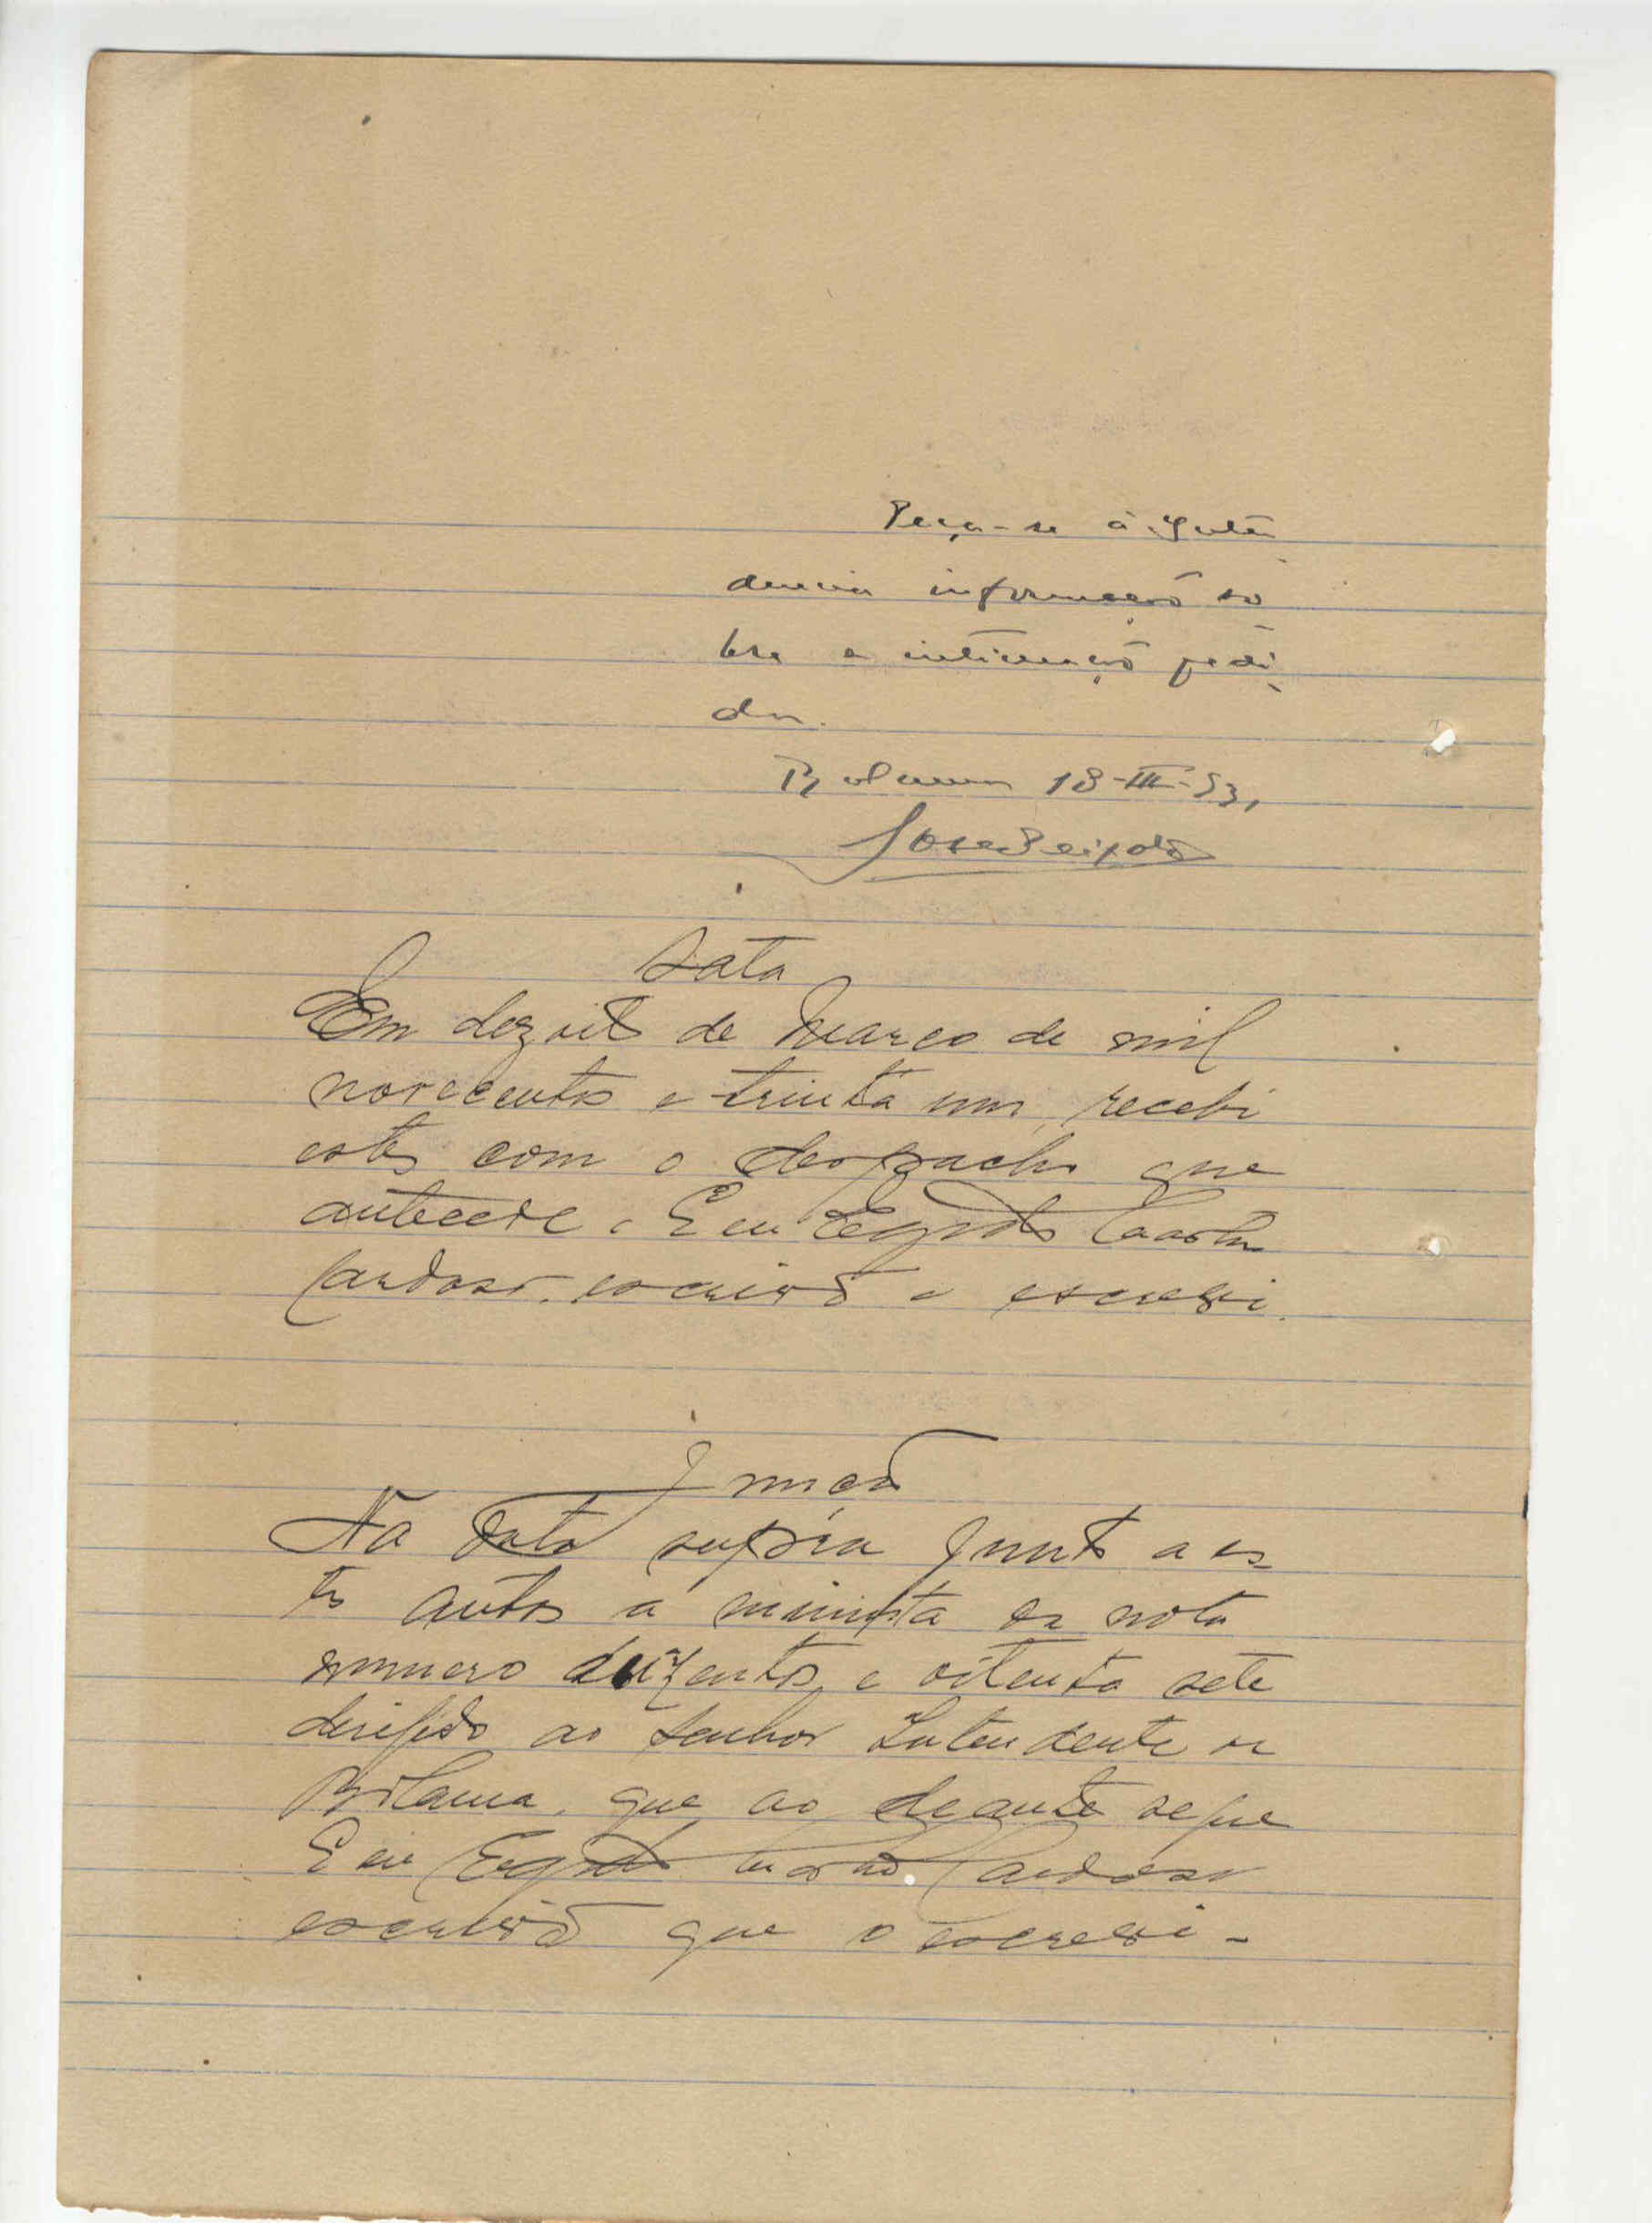 Peça-se á Inten
dencia informação so
bre a intimação pedi
da.
Bolama 18-III-931
José Peixoto
Data
Em dezoito de Março de mil
novecentos e trinta um, recebi
estes com o despacho que
antecede. E eu Egydio Castro
Cardoso, escrivão o escrevi.
Juncão
Na data supra junto a es
tes autos a minuta da nota
numero duzentos e oitenta sete
dirijido ao Senhor Intendente de
Bolama, que ao deante segue
E eu Egydio Cardoso
escrivão que o escrevi -